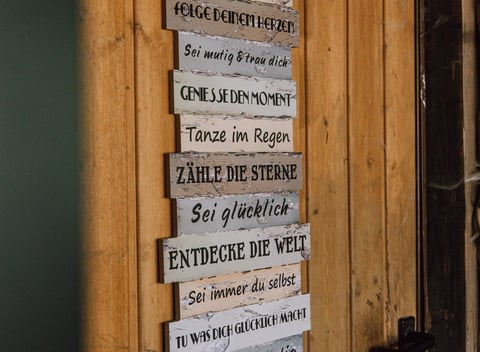 FOLGE DEINEM HERZEN
Sei mutig & trau dich
GENIESSE DEN MOMENT
Tanze im Regen
ZÄHLE DIE STERNE
Sei glücklich
ENTDECKE DIE WELT
Sei immer du selbst
TU WAS DICH GLÜCKLICH MACHT